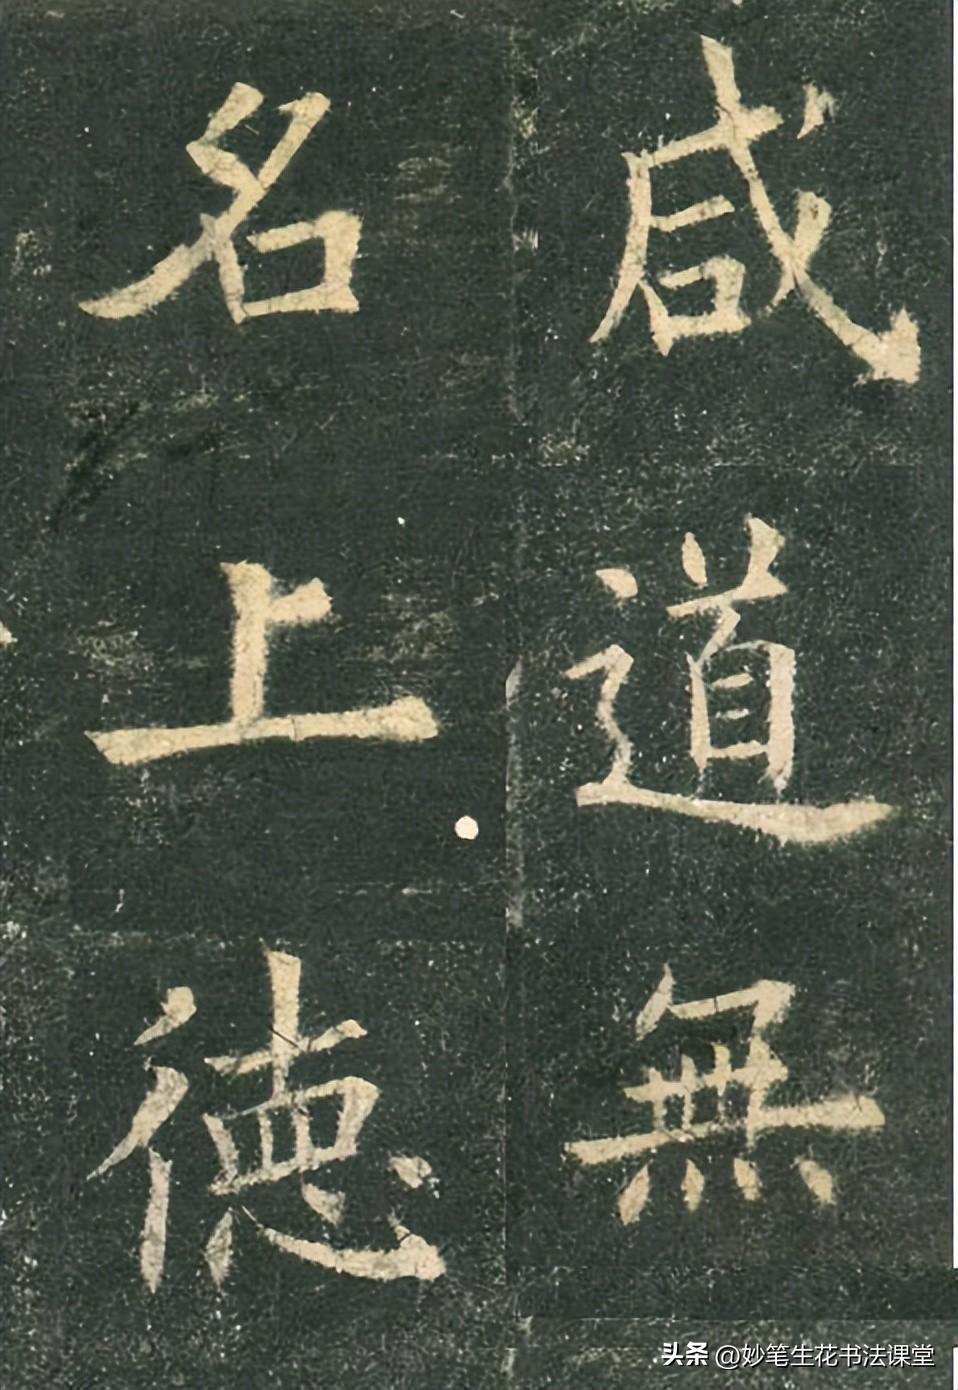 咸道無
名上德
头条 @妙笔生花书法课堂